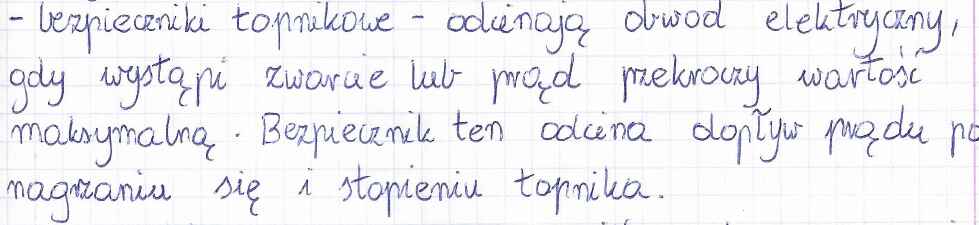 - bezpieczniki topnikowe - odcinają obwod elektryczny,
gdy wystąpi zwarcie lub prąd przekroczy wartość
maksymalną. Bezpiecznik ten odcina dopływ prądu po
nagrzaniu się i stopieniu topnika.